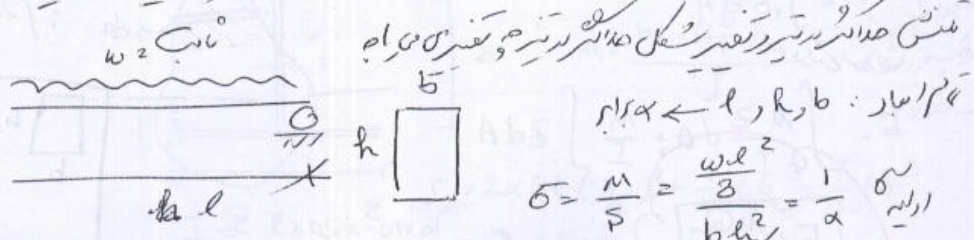 تنش حداکثر در تیر و تغییر شکل حداکثر در تیر چه تغییری می‌یابد
ثابت
w =
b
تمام ابعاد : b و h و l → α برابر
h
l
σ = M/S = (wl²/8)/(bh²/) = 1/α σ اولیه